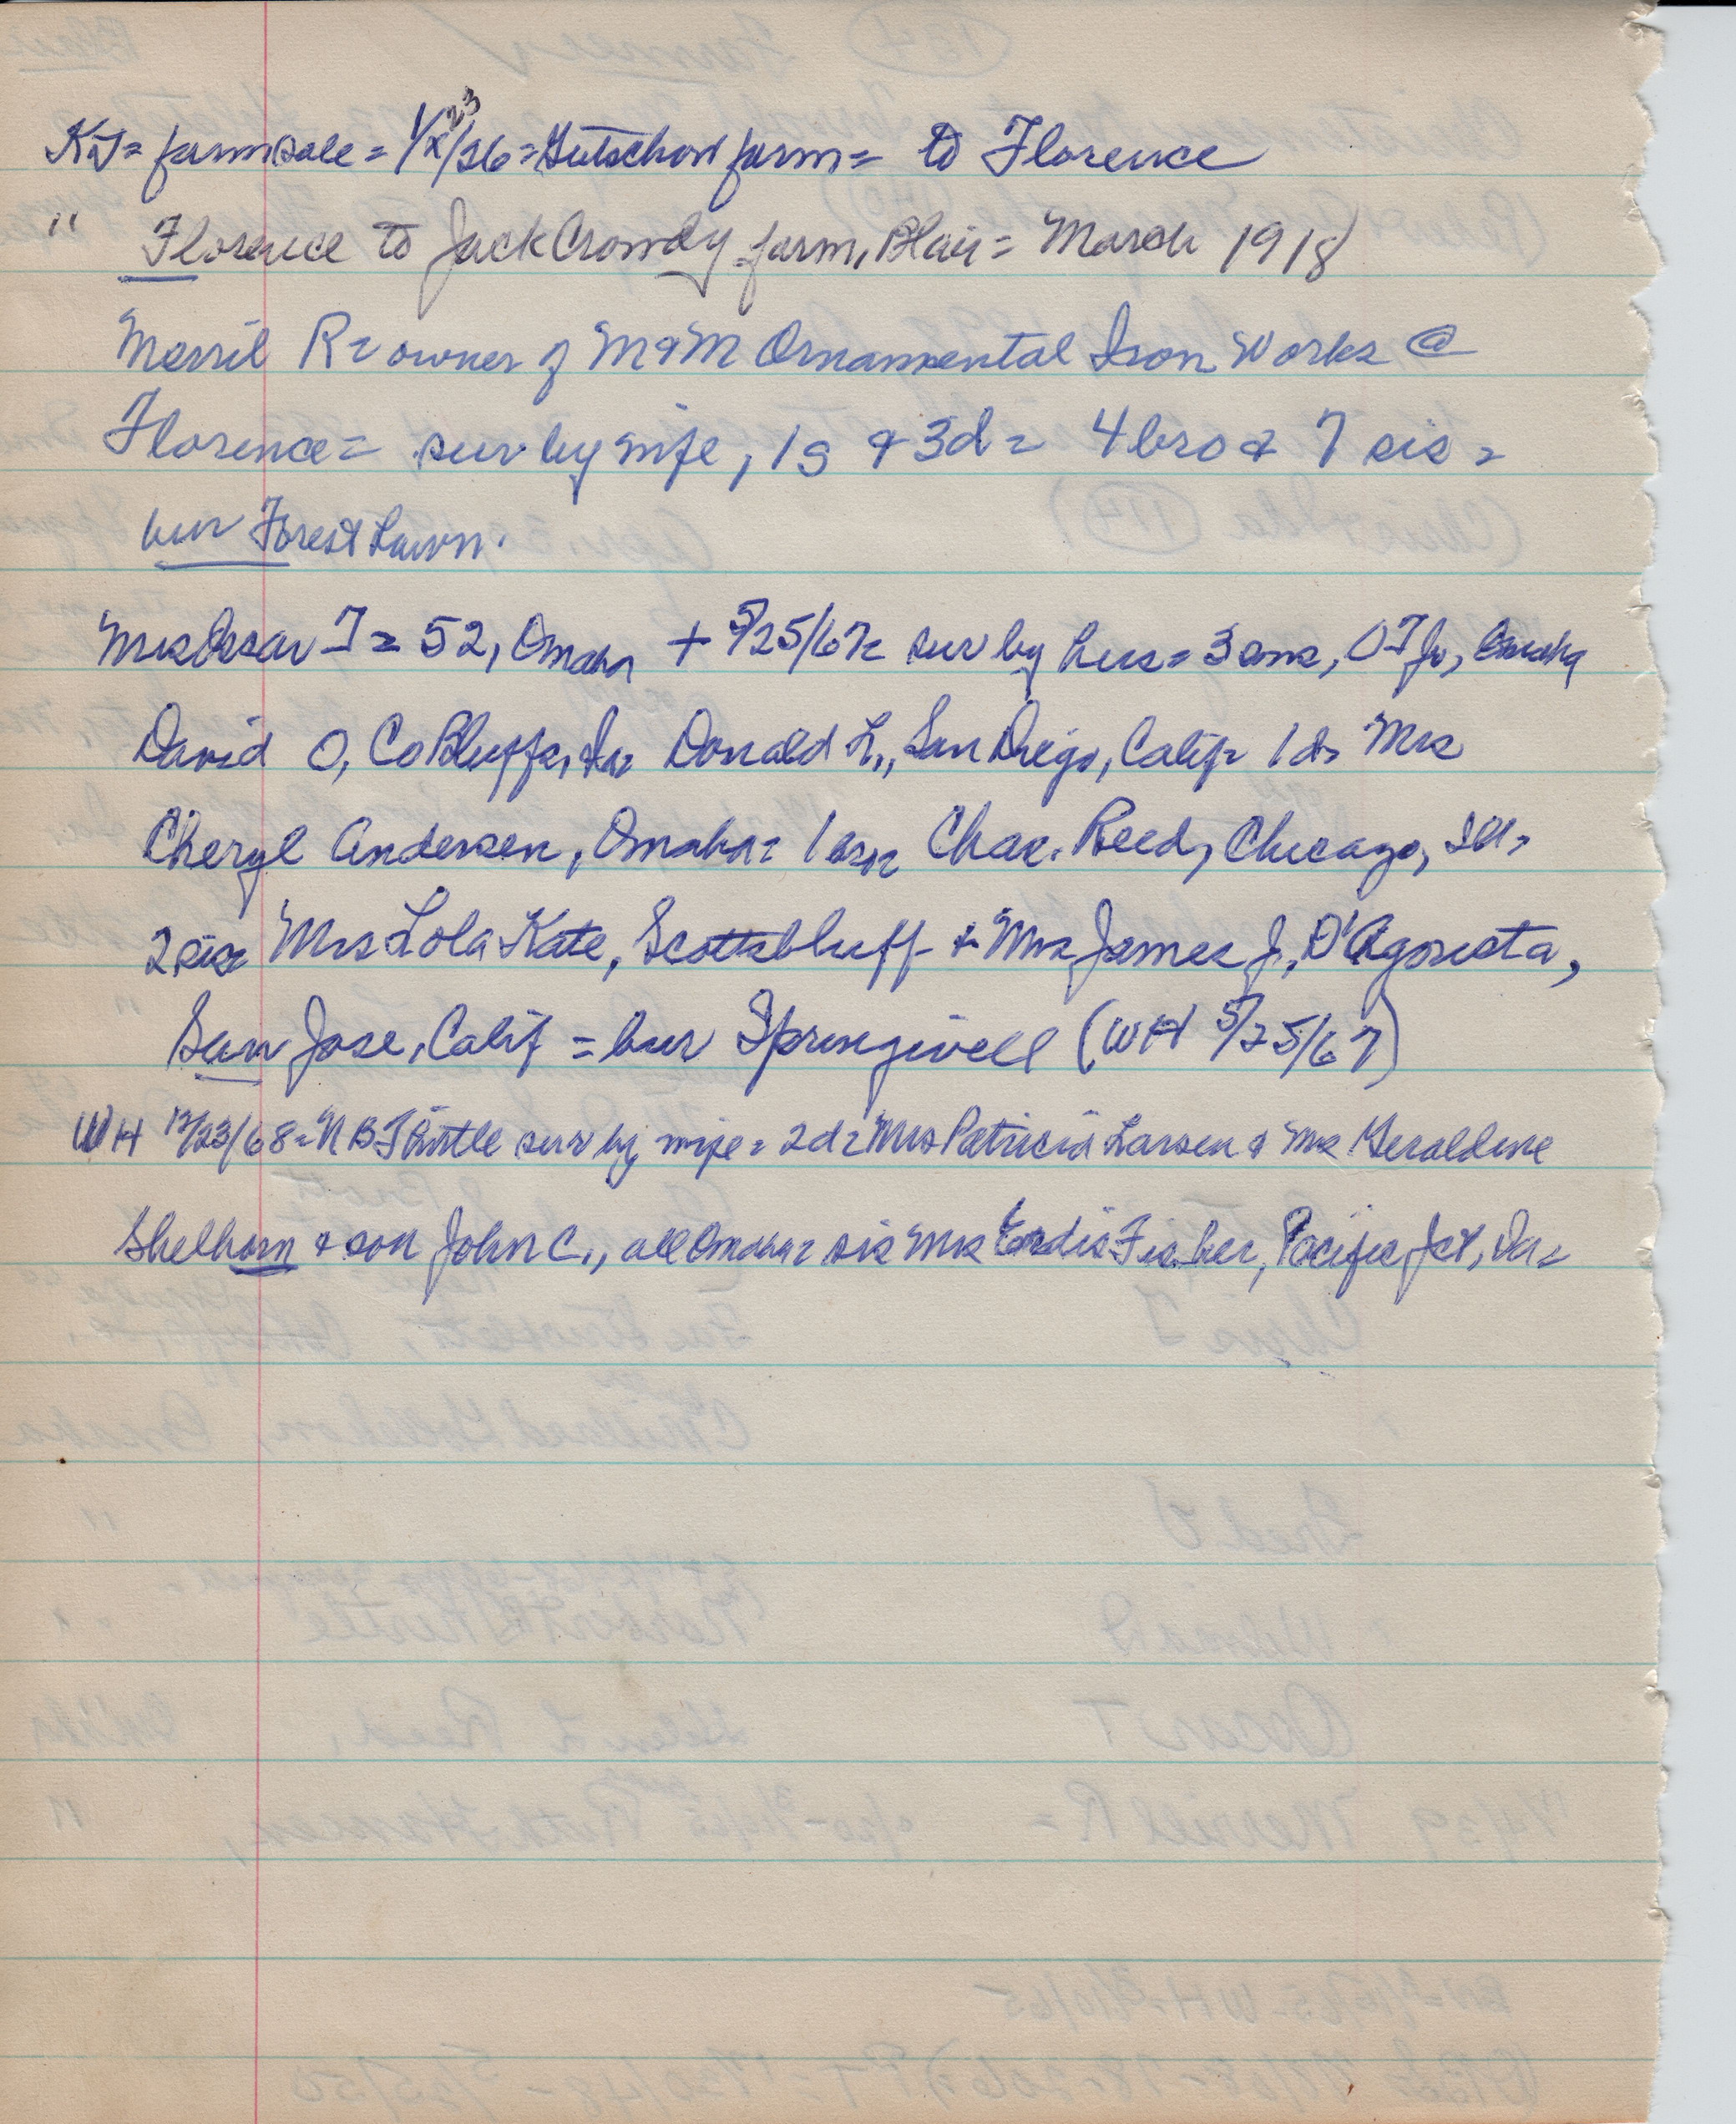 farm sale = 1/23/26 = Gutschow farm = to Florence
" Florence to Jack Crowdy farm, Blair = March 1918
Merril R = owner of M & M Ornamental Iron Works @
Florence = sur by wife, 1 s & 3d = 4 bro & 7 sis =
bur Forest Lawn.
Mrs Oscar T = 52, Omaha + 5/25/67 = sur by hus = 3 sons, O T Jr, Omaha
David O, Co Bluffs, Ia = Donald L., San Diego, Calif = 1 d = Mrs
Cheryl Andersen, Omaha = 1 bro = Chas. Reed, Chicago, Ill =
2 sis = Mrs Lola Kate, Scottsbluff & Mrs James J, D'Agosta,
San Jose, Calif = bur Springwell (WH 5/25/67)
WH 12/23/68 = N B Thirtle sur by wife = 2d = Mrs Patricia Larsen & Mrs Geraldine
Shelhorn & son John C., all Omaha = sis Mrs Fischer, Pacific Jct, Ia =